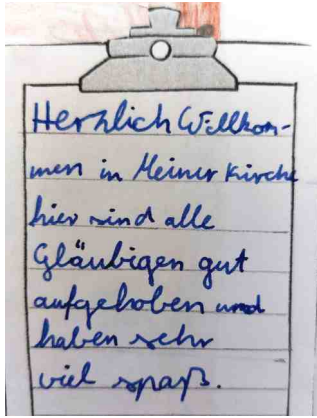 Herzlich Willkom-
men in Meiner Kirche
hier sind alle
Gläubigen gut
aufgehoben und
haben sehr
viel spaß.